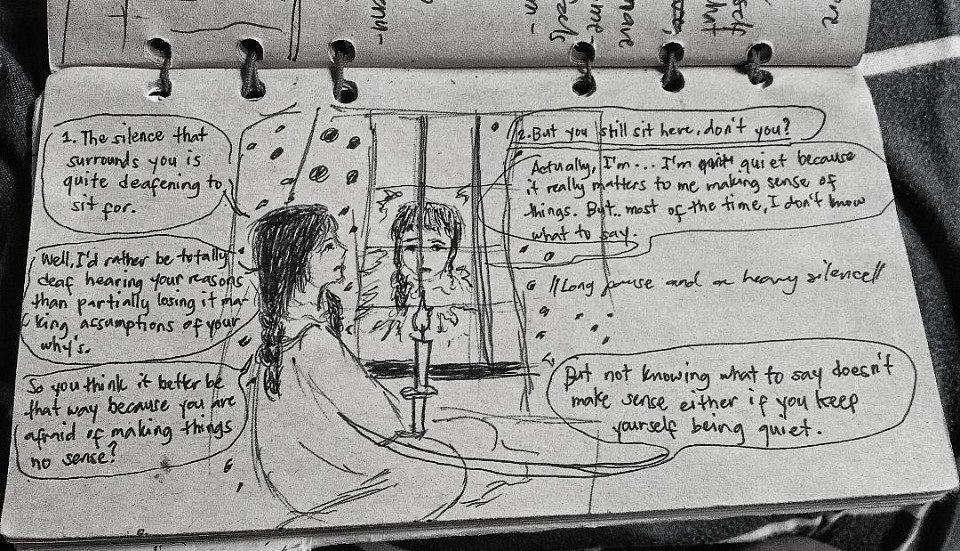 1. The silence that
surrounds you is
quite deafening to
sit for.
2. But you still sit here, don't you?
Well, I'd rather be totally
deaf hearing your reasons
than partially losing it ma-
king assumptions of your
why's.
Actually, I'm... I'm quiet because
it really matters to me making sense of
things. But.. most of the time, I don't know
what to say.
So you think it better be
that way because you are
afraid of making things
no sense?
//Long pause and a heavy silence//
But not knowing what to say doesn't
make sense either if you keep
yourself being quiet.